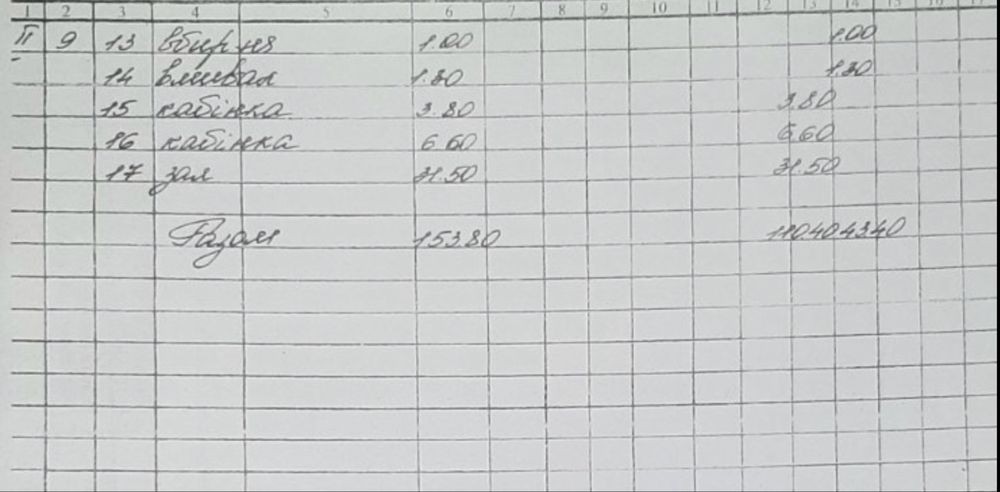 1 2 3 4 5 6 7 8 9 10 11 12 13 14 15 16 17
II 9 13 вбирня 1.00 1.00
14 вмивал 1.30 1.30
15 кабінка 3.80 3.80
16 кабінка 6.60 6.60
17 зал 31.50 31.50
Разом 153.80 110.40 43.40